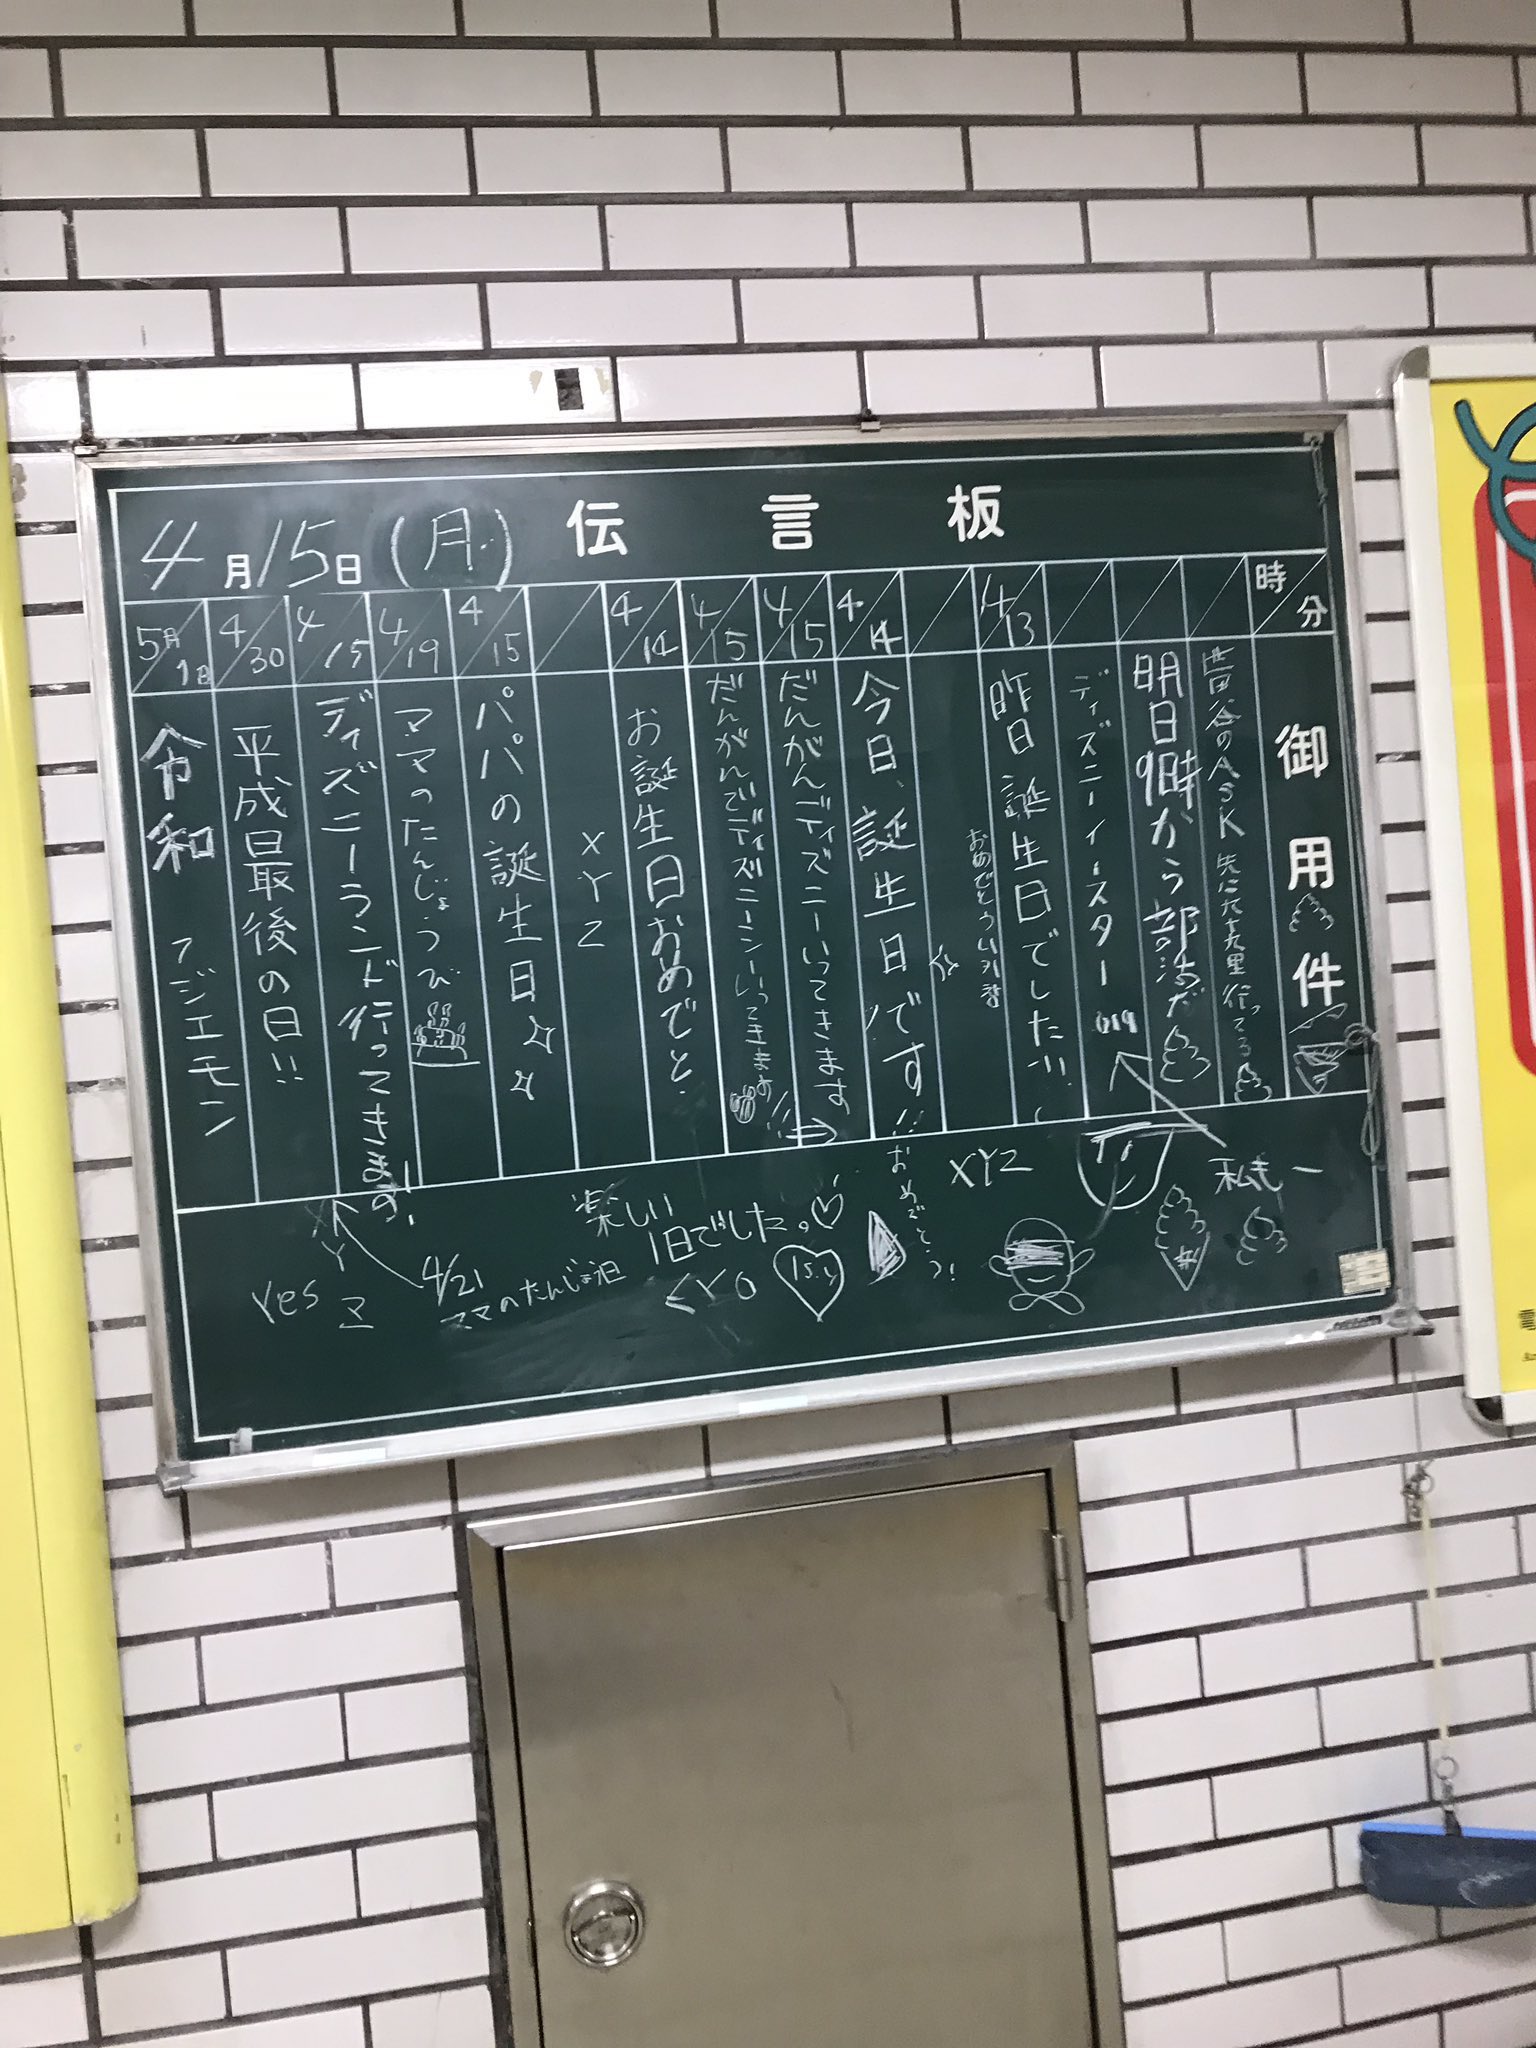 伝言板
4月15日(月)
時分
御用件
世田谷のASK 先に九十九里行ってる
明日9時から部活だ
ディズニーイースター
4/13
昨日誕生日でした!!
おめでとうハハ
4/14
今日、誕生日です!!おめでとう!
4/15
だんがんディズニーいってきます
4/15
だんがんでディズニーシーいってきます
4/14
お誕生日おめでと
XYZ
4/15
パパの誕生日
4/19
ママのたんじょうび
4/15
ディズニーランド行ってきます!
4/30
平成最後の日!!
5月1日
令和 アジエモン
私もー
XYZ
楽しい
1日でした。
15.
4/21
ママのたんじょう日
XYZ
Yes